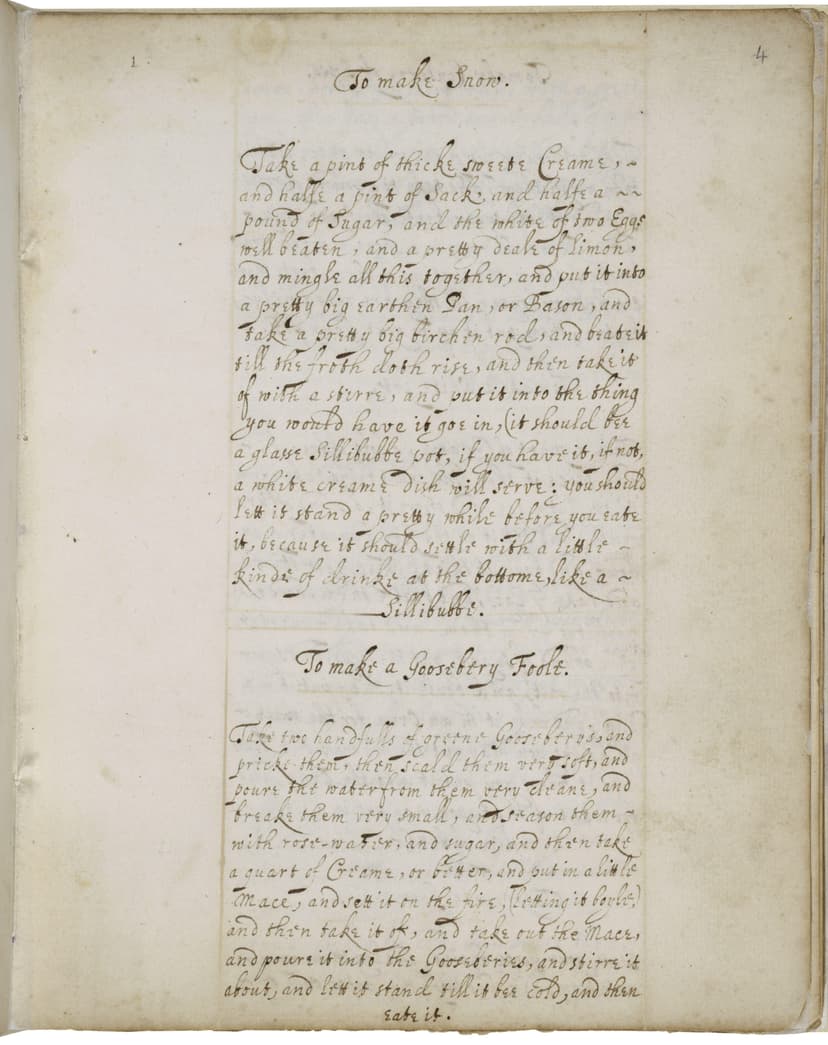 1
4
To make Snow.
Take a pint of thicke sweete Creame, ~
and halfe a pint of Sack, and halfe a ~~
pound of Sugar, and the white of two Eggs
well beaten, and a pretty deale of Limon,
and mingle all this together, and put it into
a pretty big earthen Pan, or Bason, and
take a pretty big birchen rod, and beate it
till the froth doth rise, and then take it
of with a stirre, and put it into the thing
you would have it goe in, (it should bee
a glasse Sillibubbe pot, if you have it, if not,
a white creame dish will serve; you should
lett it stand a pretty while before you eate
it, because it should settle with a little -
kinde of drinke at the bottome, like a ~
Sillibubbe.
To make a Goosebery Foole.
Take two handfulls of greene Gooseberys, and
pricke them, then scald them very soft, and
poure the water from them very cleane, and
breake them very small, and season them -
with rose-water, and sugar, and then take
a quart of Creame, or better, and put in a little
Mace, and sett it on the fire, (letting it boyle,)
and then take it of, and take out the Mace,
and poure it into the Gooseberies, and stirre it
about, and lett it stand till it bee cold, and then
eate it.